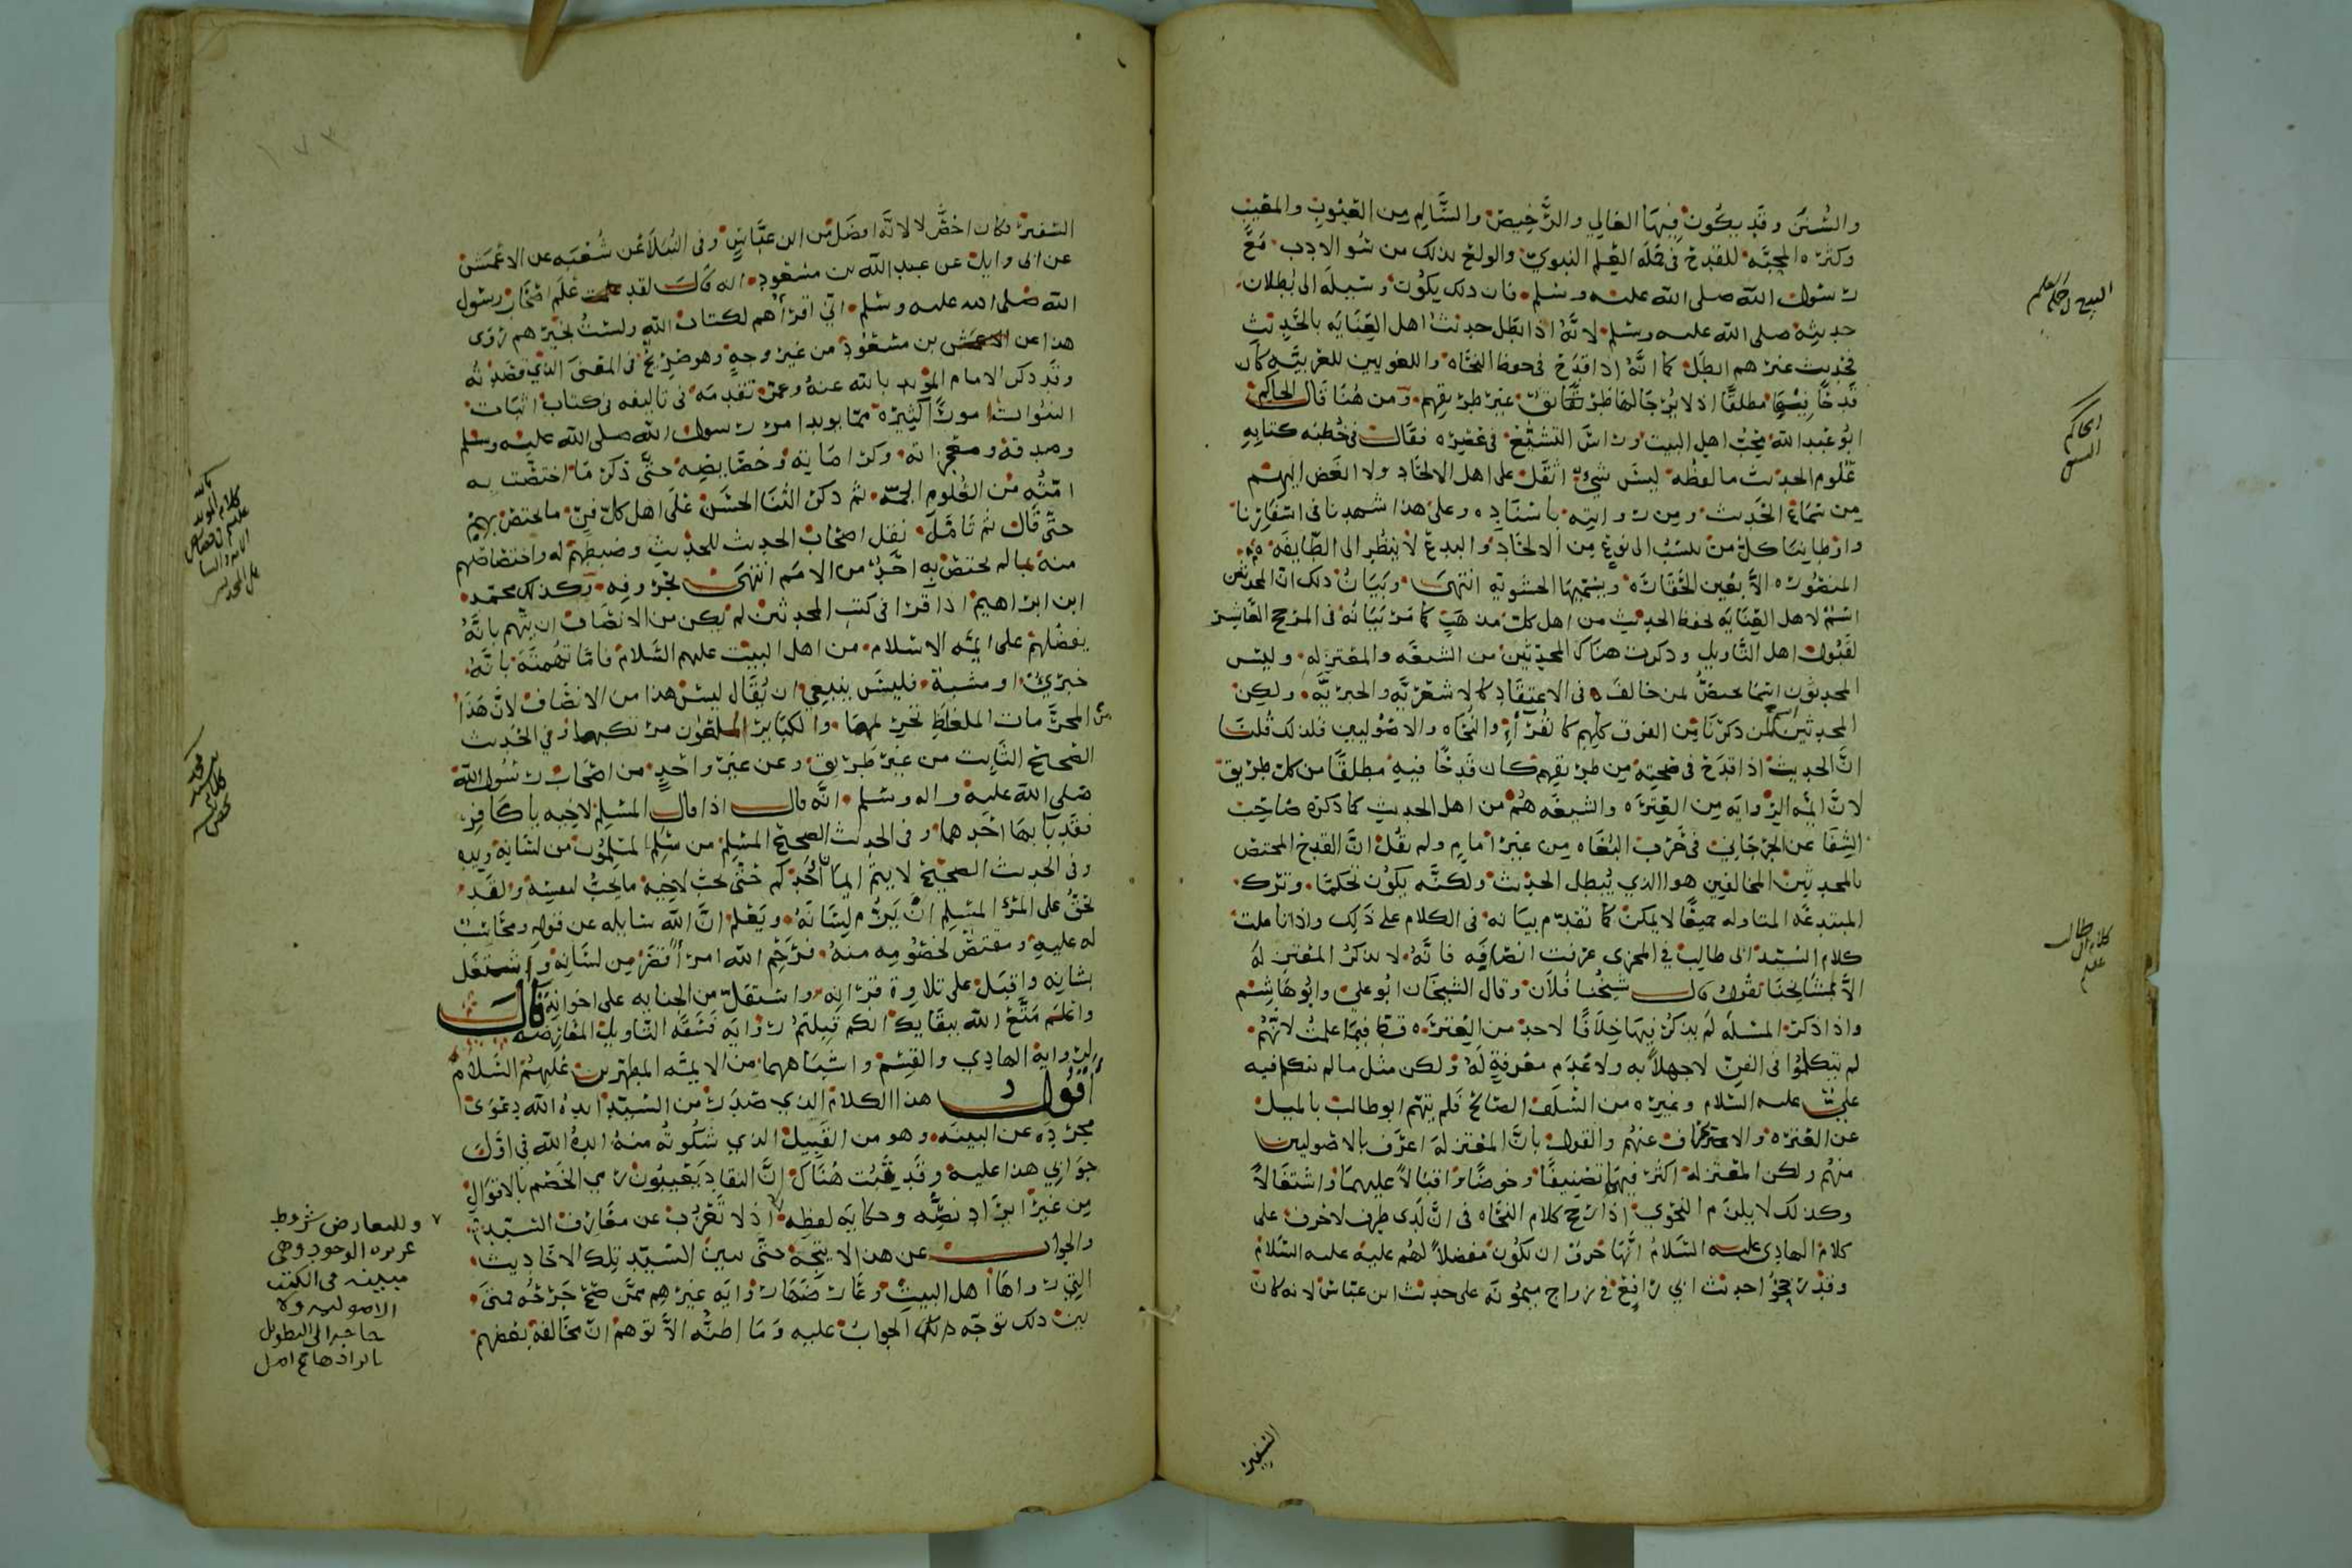 والسنن وقد يكون فيها الغالي والرخيص والسالم من العيوب والمعيب
وكثرة المحبة للقدح في حملة العلم النبوي والولع بذلك من سوء الادب مع
رسول الله صلى الله عليه وسلم فان ذلك يكون وسيلة الى بطلان
حديثه صلى الله عليه وسلم لانه اذا بطل حديث اهل العناية بالحديث
فحديث غيرهم ابطل كما انه اذا قدح في حفظ النحاة واللغويين للعربية كان
قدحا فيها مطلقا اذ لا يرجا لها طريق غير طريقهم ومن هنا قال الحاكم
ابو عبد الله محب اهل البيت وراس التشيع في عصره فقال في خطبة كتابه
علوم الحديث ما لفظه ليس شيء اثقل على اهل الالحاد ولا ابغض اليهم
من سماع الحديث ومن روايته باسناده وعلى هذا شهدنا في اسفارنا
واوطاننا كل من ينسب الى نوع من الالحاد والبدع لا ينظر الى الطايفة
المنصورة الا بعين الحقارة ويسميها الحشوية انتهى وبيان ذلك ان المحدثين
اسم لاهل العناية لحفظ الحديث من اهل كل مذهب كما مر بيانه في المرجح العاشر
لقبول اهل التاويل وذكرت هناك المحدثين من الشيعة والمعتزلة وليس
المحدثون اسما يختص لمن خالف في الاعتقاد كالاشعرية والجبرية ولكن
المحدثين من ذكرنا من الفرق كلهم كالقراء والنحاة والاصوليين فلذلك قلنا
ان الحديث اذا قدح في صحته من طريقهم كان قدحا فيه مطلقا من كل طريق
لان ائمة الرواية من العترة والشيعة هم من اهل الحديث كما ذكره صاحب
الشفا عن الجرجاني في حرب البغاة من غير امام ولم نقل ان القدح المختص
بالمحدثين المخالفين هو الذي يبطل الحديث ولكنه يكون تحكما وترك
المبتدعة المتاولة جميعا لا يمكن كما تقدم بيانه في الكلام على ذلك واذا تاملت
كلام السيد ابي طالب في المجزي عرفت انصافه فانه لا يذكر المعتزلة
الا بمشايخنا يقول قال شيخنا فلان وقال الشيخان ابو علي وابو هاشم
واذا ذكر المسلة لم يذكر فيها خلافا لاحد من العترة قط فيما علمت لانهم
لم يتكلموا في الفن لا جهلا به ولا عدم معرفة له ولكن مثل ما لم يتكلم فيه
علي عليه السلام وغيره من السلف الصالح فلم يتهم ابو طالب بالميل
عن العترة والانحراف عنهم والقول بان المعتزلة اعرف بالاصوليين
منهم ولكن المعتزلة اكثر فيهما تصنيفا وخوضا واقبالا عليهما واشتغالا
وكذلك لا يلزم النحوي اذا رجح كلام النحاة في ان لدى ظرف لا حرف على
كلام الهادي عليه السلام انها حرف ان يكون مفضلا لهم عليه عليه السلام
وقد رجحوا حديث ابي رافع في زواج ميمونة على حديث ابن عباس لانه كان
السفير
الحاكم
كلام ابي طالب
السفير فكان اخص لا لانه افضل من ابن عباس وفي النبلا عن شعبة عن الاعمش
عن ابي وايل عن عبد الله بن مسعود انه قال لقد علم اصحاب رسول
الله صلى الله عليه وسلم اني اقرأهم لكتاب الله ولست بخيرهم روى
هذا عن بن مسعود من غير وجه وهو صريح في المعنى الذي قصدته
وقد ذكر الامام المؤيد بالله عنه وعمن تقدمه في تاليفه في كتاب اثبات
النبوات امورا كثيرة مما يويد امر رسول الله صلى الله عليه وسلم
وصدقه ومعجزاته وكراماته وخصايصه حتى ذكر ما اختصت به
امته من العلوم الجمة ثم ذكر الثنا الحسن على اهل كل فن ما يختص بهم
حتى قال ثم تامل نقل اصحاب الحديث للحديث وضبطهم له واختصاصهم
منه بما لم يختص به احد من الامم انتهى بحروفه وكذلك محمد
ابن ابراهيم اذا قرا في كتب المحدثين لم يكن من الانصاف ان يتهم بانه
يفضلهم على ايمة الاسلام من اهل البيت عليهم السلام فاما تهمته بانه
جبري او مشبه فليس ينبغي ان يقال ليس هذا من الانصاف لان هذا
من المحرمات المغلظ تحريمها والكباير الملعون مرتكبها وفي الحديث
الصحيح الثابت من غير طريق وعن غير واحد من اصحاب رسول الله
صلى الله عليه واله وسلم انه قال اذا قال المسلم لاخيه يا كافر
فقد با بها احدهما وفي الحديث الصحيح المسلم من سلم المسلمون من لسانه ويده
وفي الحديث الصحيح لا يتم ايمان احدكم حتى يحب لاخيه ما يحب لنفسه ولقد
يحق على المرء المسلم ان يزم لسانه ويعلم ان الله سايله عن قوله ومحاسب
له عليه ومقتص لخصومه منه فرحم الله امرأ قصر من لسانه واشتغل
بشانه واقبل على تلاوة قرانه واشتغل من الجناية على اخوانه قال
واعلم متع الله ببقايك انكم قبلتم رواية فسقة التاويل المعارضة
لرواية الهادي والقسم واشباههما من الايمة المطهرين عليهم السلام
اقول هذا الكلام الذي صدر من السيد ايده الله دعوى
مجردة عن البينة وهو من القبيل الذي شكوته منه ايده الله في اول
جوابي هذا عليه وقد بينت هناك ان النقاد يعيبون رمي الخصم بالاقوال
من غير ايراد نصه وحكاية لفظه اذ لا تعزب عن معارف السيد
والجواب عن هذا لا يتجه حتى يبين السيد تلك الاحاديث
التي رواها اهل البيت وعارضها رواية غيرهم ممن صح جرحه فمتى
بين ذلك توجه الجواب عليه وما اظنه الا توهم ان مخالفة بعضهم
كلام المويد
وللتعارض شروط
عزيزة الوجود وهي
مبينة في الكتب
الاصولية ولا
حاجة الى التطويل